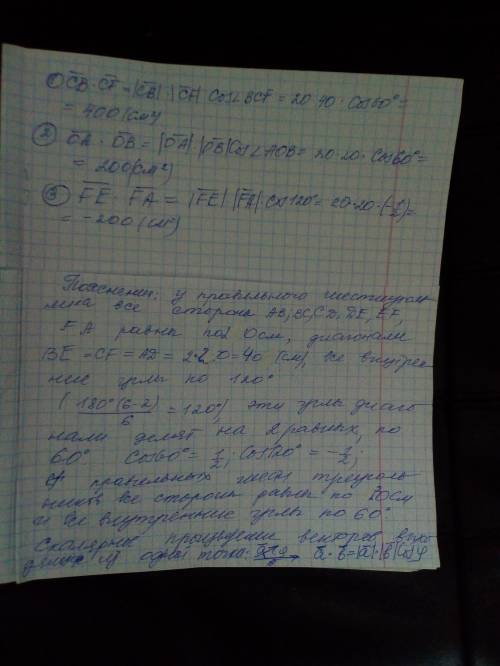 ① C̅B̅ · C̅F̅ = |C̅B̅| · |C̅F̅| Cos∠BCF = 20·40·Cos60°=
= 400 (см²)
② O̅A̅ · O̅B̅ = |O̅A̅| · |O̅B̅| Cos∠AOB = 20·20·Cos60°=
= 200(см²)
③ F̅E̅ · F̅A̅ = |F̅E̅| · |F̅A̅| · Cos120° = 20·20·(-1/2)=
= -200 (см²)
Пояснения: у правильного шестиуголь-
ника все стороны AB, BC, CD, DE, EF,
FA равны по 20см, диагонали
BE = CF = AD = 2·20 = 40 (см), все внутрен-
ние углы по 120°
(180°(6-2)/6 = 120°), эти углы диаго-
нали делят на 2 равных, по
60°. Cos60° = 1/2; Cos120° = -1/2;
У правильных треуголь-
ников все стороны равны по 20см
и все внутренние углы по 60°
Скалярное произведение векторов
из одной точки: a̅ · b̅ = |a̅|·|b̅| Cosφ